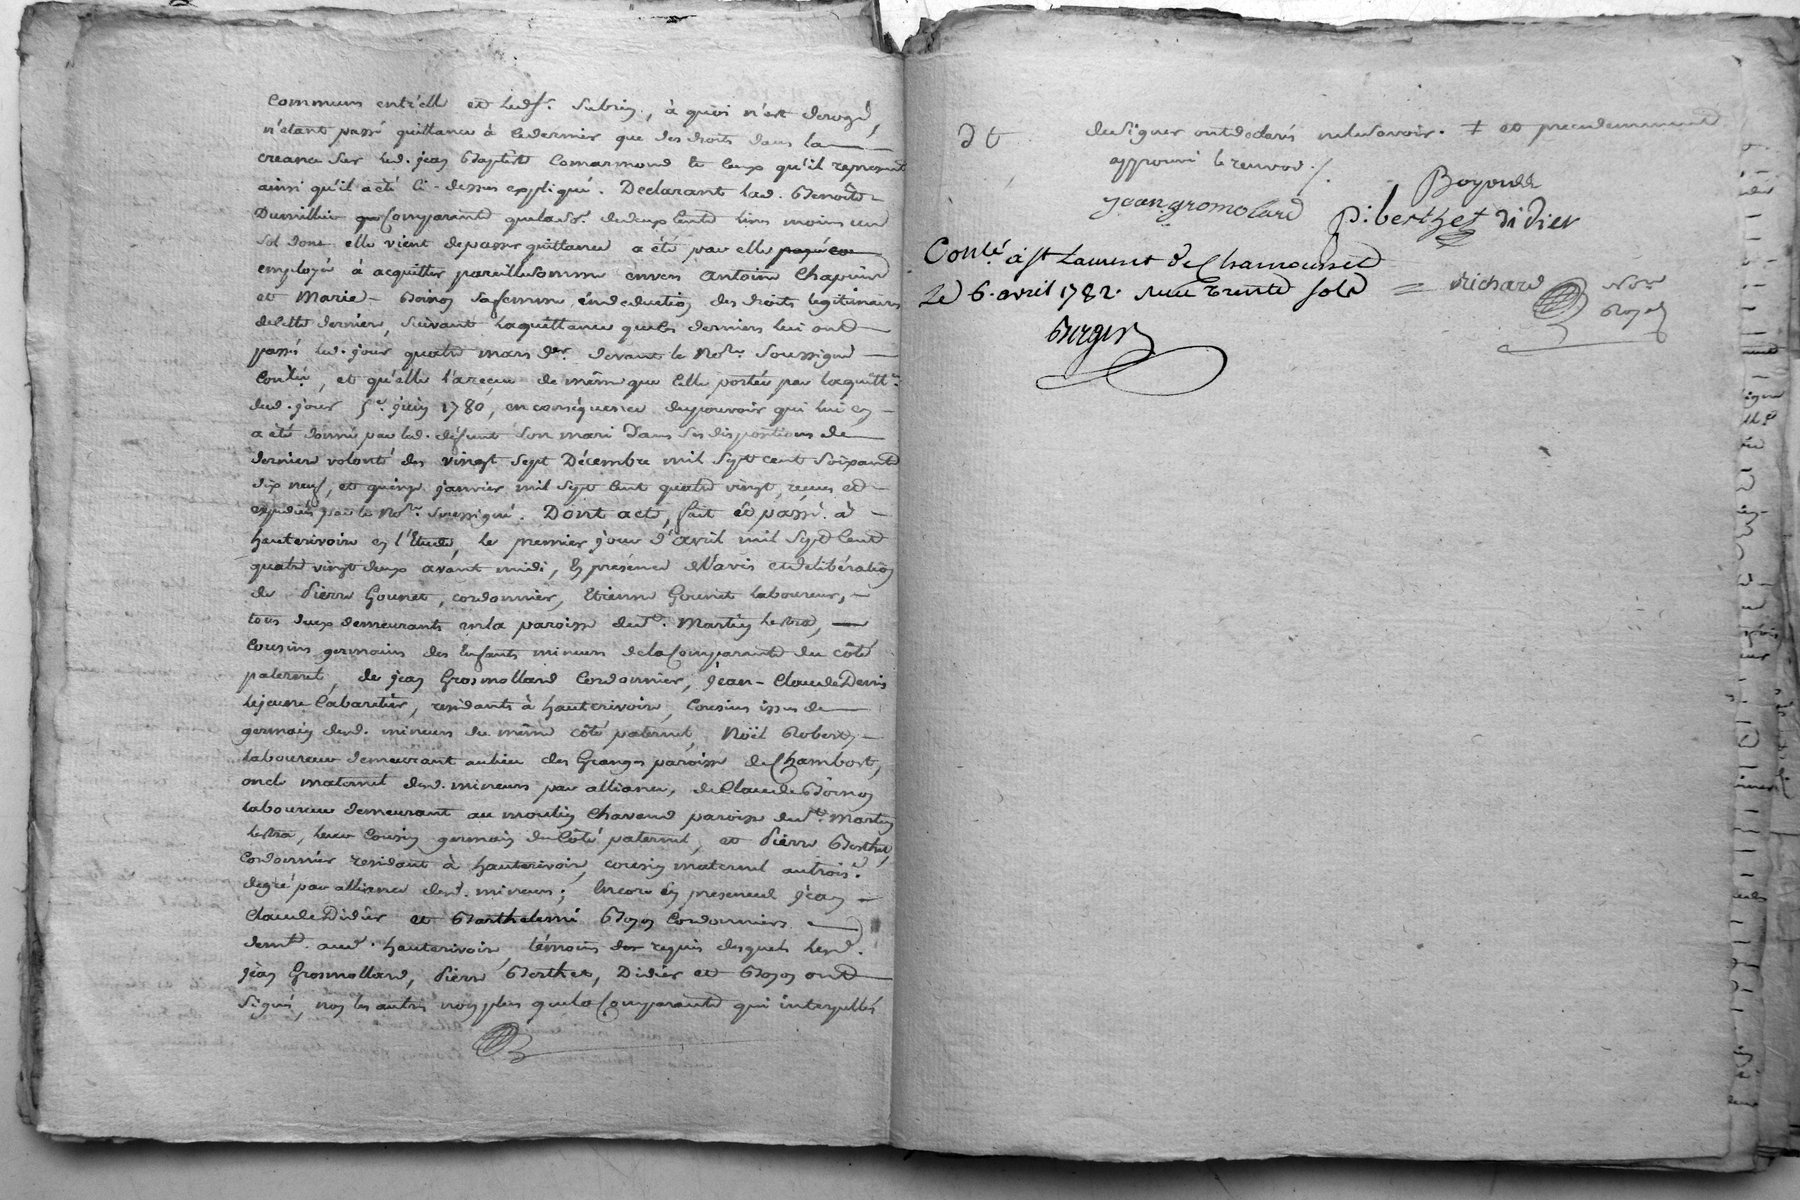 communs entr'elle et led. sr. Subrin, à quoi n'est derogé,
n'etant passé quittance à ce dernier que des droits dans la
creance sur led. jean Baptiste Comarmond et ceux qu'il represente
ainsi qu'il a été ci-dessus expliqué. Declarant lad. Benoite
Dumillier Comparante que la so.e de deux cents livres moins un
sol dont elle vient de passer quittance a été par elle
employée à acquitter pareille somme envers Antoine Chapuis
et Marie Boinon sa femme, en deduction des droits legitimaires
de cette derniere, suivant la quittance que les derniers lui ont
passé led. jour quatre mars d.er devant le No.re soussigné
Con.lée, et qu'elle l'a reçue de même que celle portée par la quitt.e
dud. jour 5.e juin 1780, en conséquence du pouvoir qui lui en
a été donné par led. défunt son mari dans ses dispositions de
derniere volonté des vingt sept Décembre mil sept cent soixante
dix neuf, et quinze janvier mil sept cent quatre vingt, recues et
expediées par le No.re soussigné. Dont acte, fait et passé à
hauterivoire en l'Etude, le premier jour d'avril mil sept cent
quatre vingt deux avant midi, En présence de l'avis et deliberation
de Pierre Gounet, cordonnier, Etienne Gounet laboureur,
tous deux demeurants en la paroisse de S.t Martin lestra,
Cousins germains des Enfants mineurs de la Comparante du côté
paternel, de jean Grosmollard Cordonnier, jean-Claude Denis
lejeune Cabaretier, residants à hauterivoire, Cousins issus de
germain desd. mineurs du même côté paternel, Noël Robert,
laboureur demeurant au lieu des Granges paroisse de Chambost,
oncle maternel desd. mineurs par alliance, de Claude Boinon
laboureur demeurant au moulin Chavand paroisse de S.t Martin
lestra, leur Cousin germain du Côté paternel, et Pierre Berthet,
Cordonnier residant à hauterivoire, cousin maternel au trois.e
degré par alliance desd. mineurs; Encore En presence de jean
Claude Didier et Barthelemi Boyon Cordonniers
dem.ts aud. hauterivoire, témoins requis desquels lesd.
jean Grosmollard, Pierre Berthet, Didier et Boyon ont
signé, non les autres non plus que la Comparante qui interpellés
de signer ont declaré ne le savoir. ‡ et precedemment
approuvé le renvoi ./.
Boyon
jean gromolard p: berthet didier
Con.lé à st Laurent de Chamousset
Le 6. avril 1782. Reçu trente sols
Richard No.re
Royal